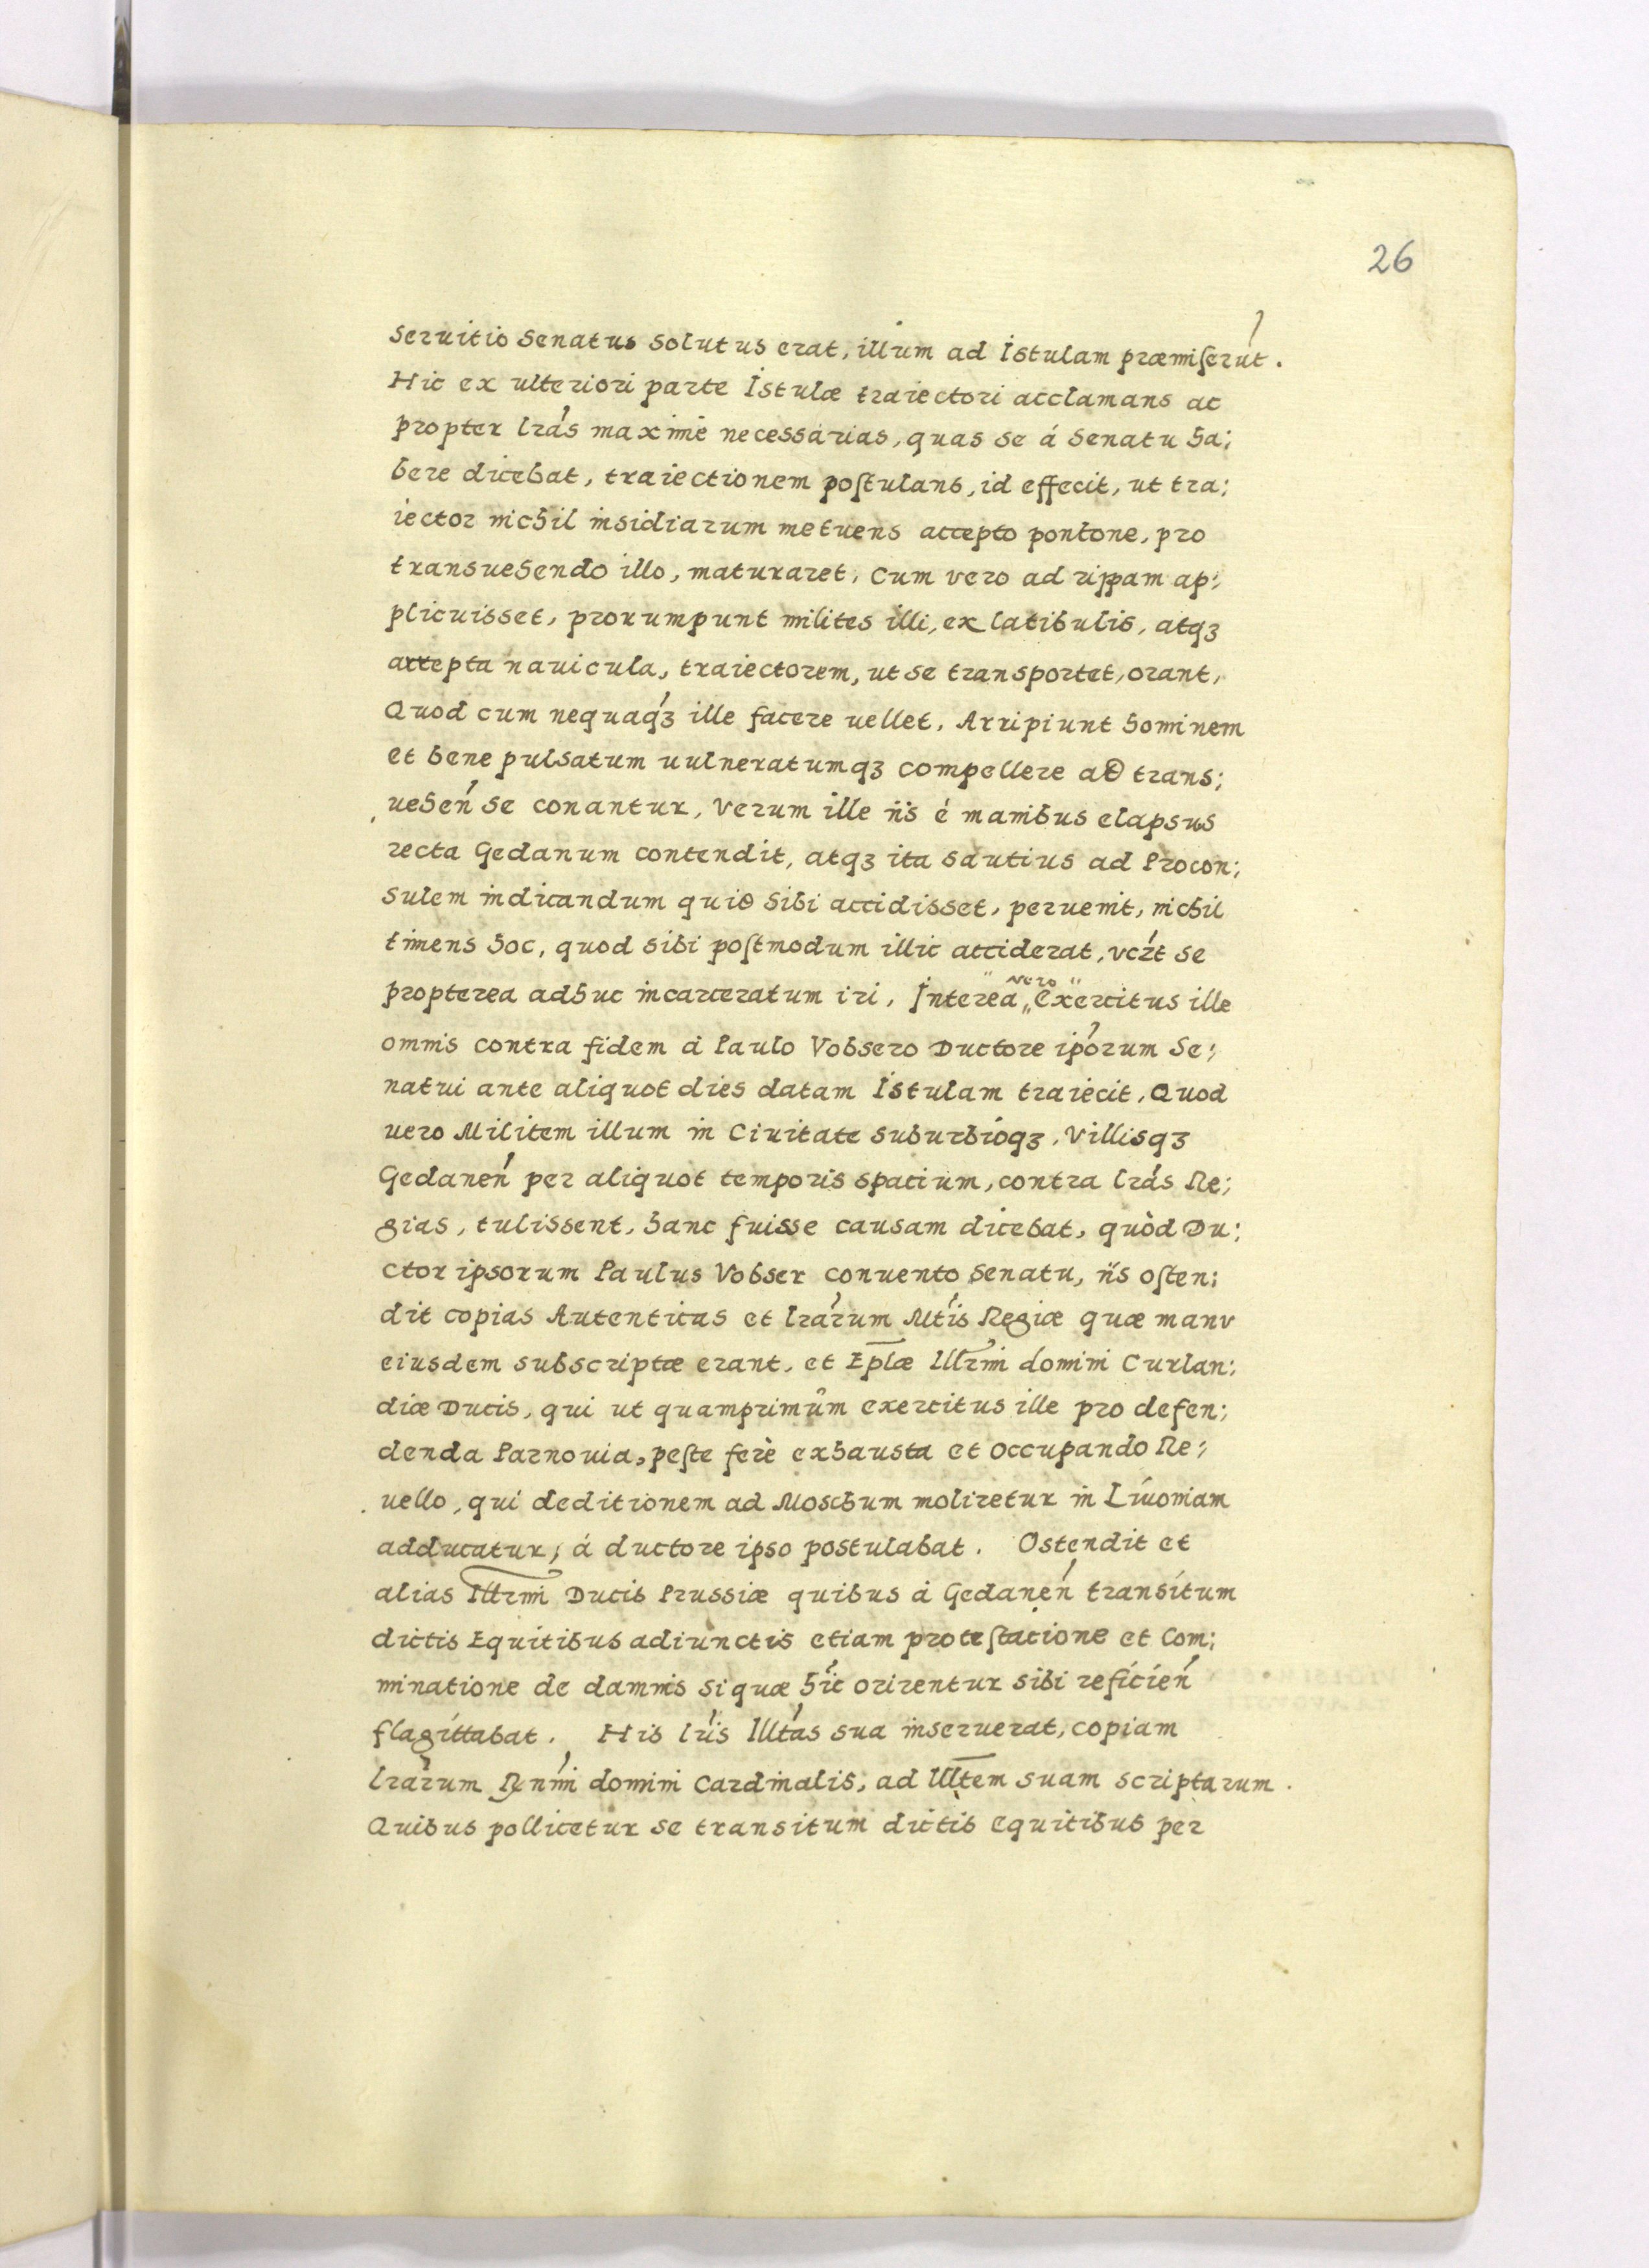 26
Seruitio Senatus Solutus erat, illum ad Istulam præmiserút.
Hic ex ulteriori parte Istulæ traiectori acclamans ac
propter lrás maximè necessarias, quas se á Senatu ha;
bere dicebat, traiectionem postulans, id effecit, ut tra;
iector nichil insidiarum metuens accepto pontone, pro
transuehendo illo, maturaret, Cum vero ad rippam ap;
plicuisset, prorumpunt milites illi, ex latibulis, atqꝫ
accepta nauicula, traiectorem, ut se transportet, orant,
Quod cum nequaqꝫ́ ille facere uellet, Arripiunt hominem
et bene pulsatum uulneratumqꝫ compellere ad trans;
uehen̕ se conantur, Verum ille ijs é manibus elapsus
recta Gedanum contendit, atqꝫ ita sautius ad Procon;
Sulem indicandum quid Sibi accidisset, peruenit, nichil
timens hoc, quod sibi postmodum illic acciderat, vczt se
propterea adhuc incarceratum iri, Interea „ vero Exercitus ille
omnis contra fidem á Paulo Vobsero Ductore ipórum Se;
natui ante aliquot dies datam Istulam traiecit, Quod
uero Militem illum in Ciuitate Suburbioqꝫ, Villisqꝫ
Gedanen̕ per aliquot temporis spatium, contra lrás Re;
gias, tulissent, hanc fuisse causam dicebat, quòd Du;
ctor ipsorum Paulus Vobser conuento Senatu, ijs osten;
dit copias Autenticas et lrárum Mtis Regiæ quæ manu
eiusdem subscriptæ erant, et Eplæ Illrmi domini Curlan;
diæ Ducis, qui ut quamprimùm exercitus ille pro defen;
denda Parnouia, peste ferè exhausta et occupando Re;
uello, qui deditionem ad Moschum moliretur in Liuoniam
adducatur, á ductore ipso postulabat. Ostendit et
alias Illrmi Ducis Prussiæ quibus á Gedanen̕ transitum
dictis Equitibus adiunctis etiam protestatione et Com;
minatione de damnis Si quæ hic orirentur sibi reficien̕
flagittabat. His lris Illtás sua inseruerat, copiam
lrárum Rnmi domini Cardinalis, ad Illtem suam scriptarum.
Quibus pollicetur se transitum dictis equitibus per